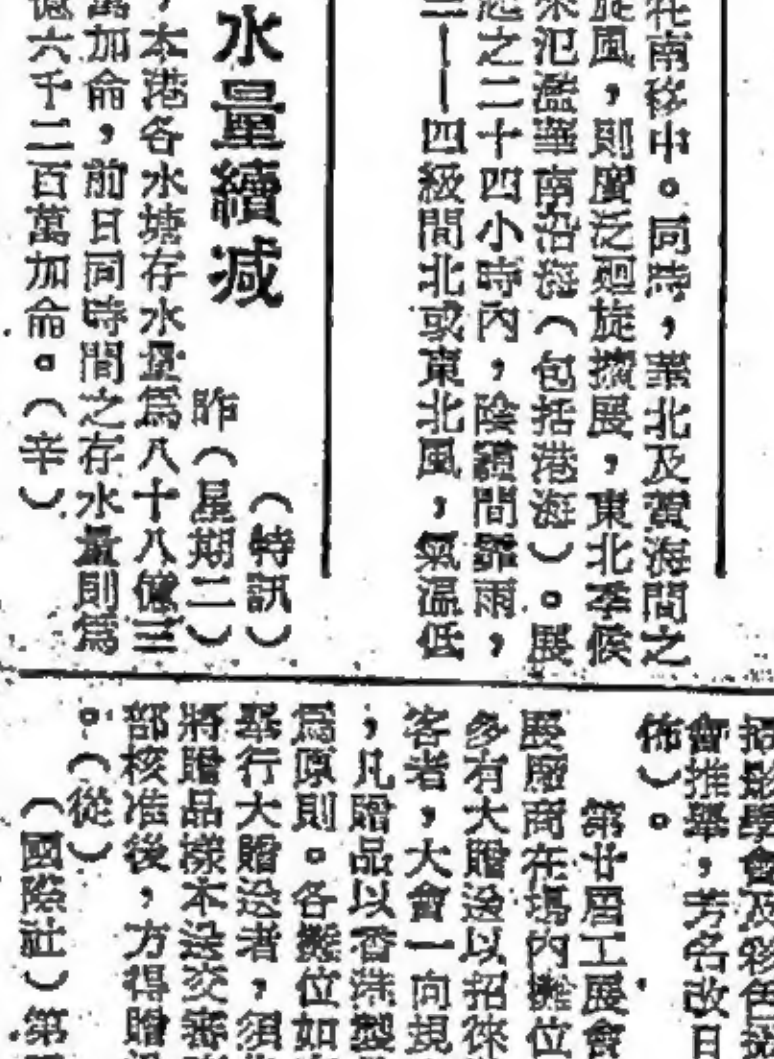 在南移中。同時，華北及黃海間之
旋風，則廣泛廻旋擴展，東北季候
來氾濫華南沿海（包括港海）。展
之二十四小時內，陰霾間靠雨，
——四級間北或東北風，氣温低
水量續減
（特訊）
昨（星期二）
，本港各水塘存水量爲八十八億三
萬加侖，前日同時間之存水量則爲
億六千二百萬加侖。（辛）
括影學會及彩色
會推舉，芳名改日
佈）。
第廿屆工展會
展廠商在塲內攤位
多有大贈送以招徠
客者，大會一向規
，凡贈品以香港製
爲原則。各攤位如
舉行大贈送者，須
將贈品樣本送交審
部核准後，方得贈
。（從）
（國際社）第